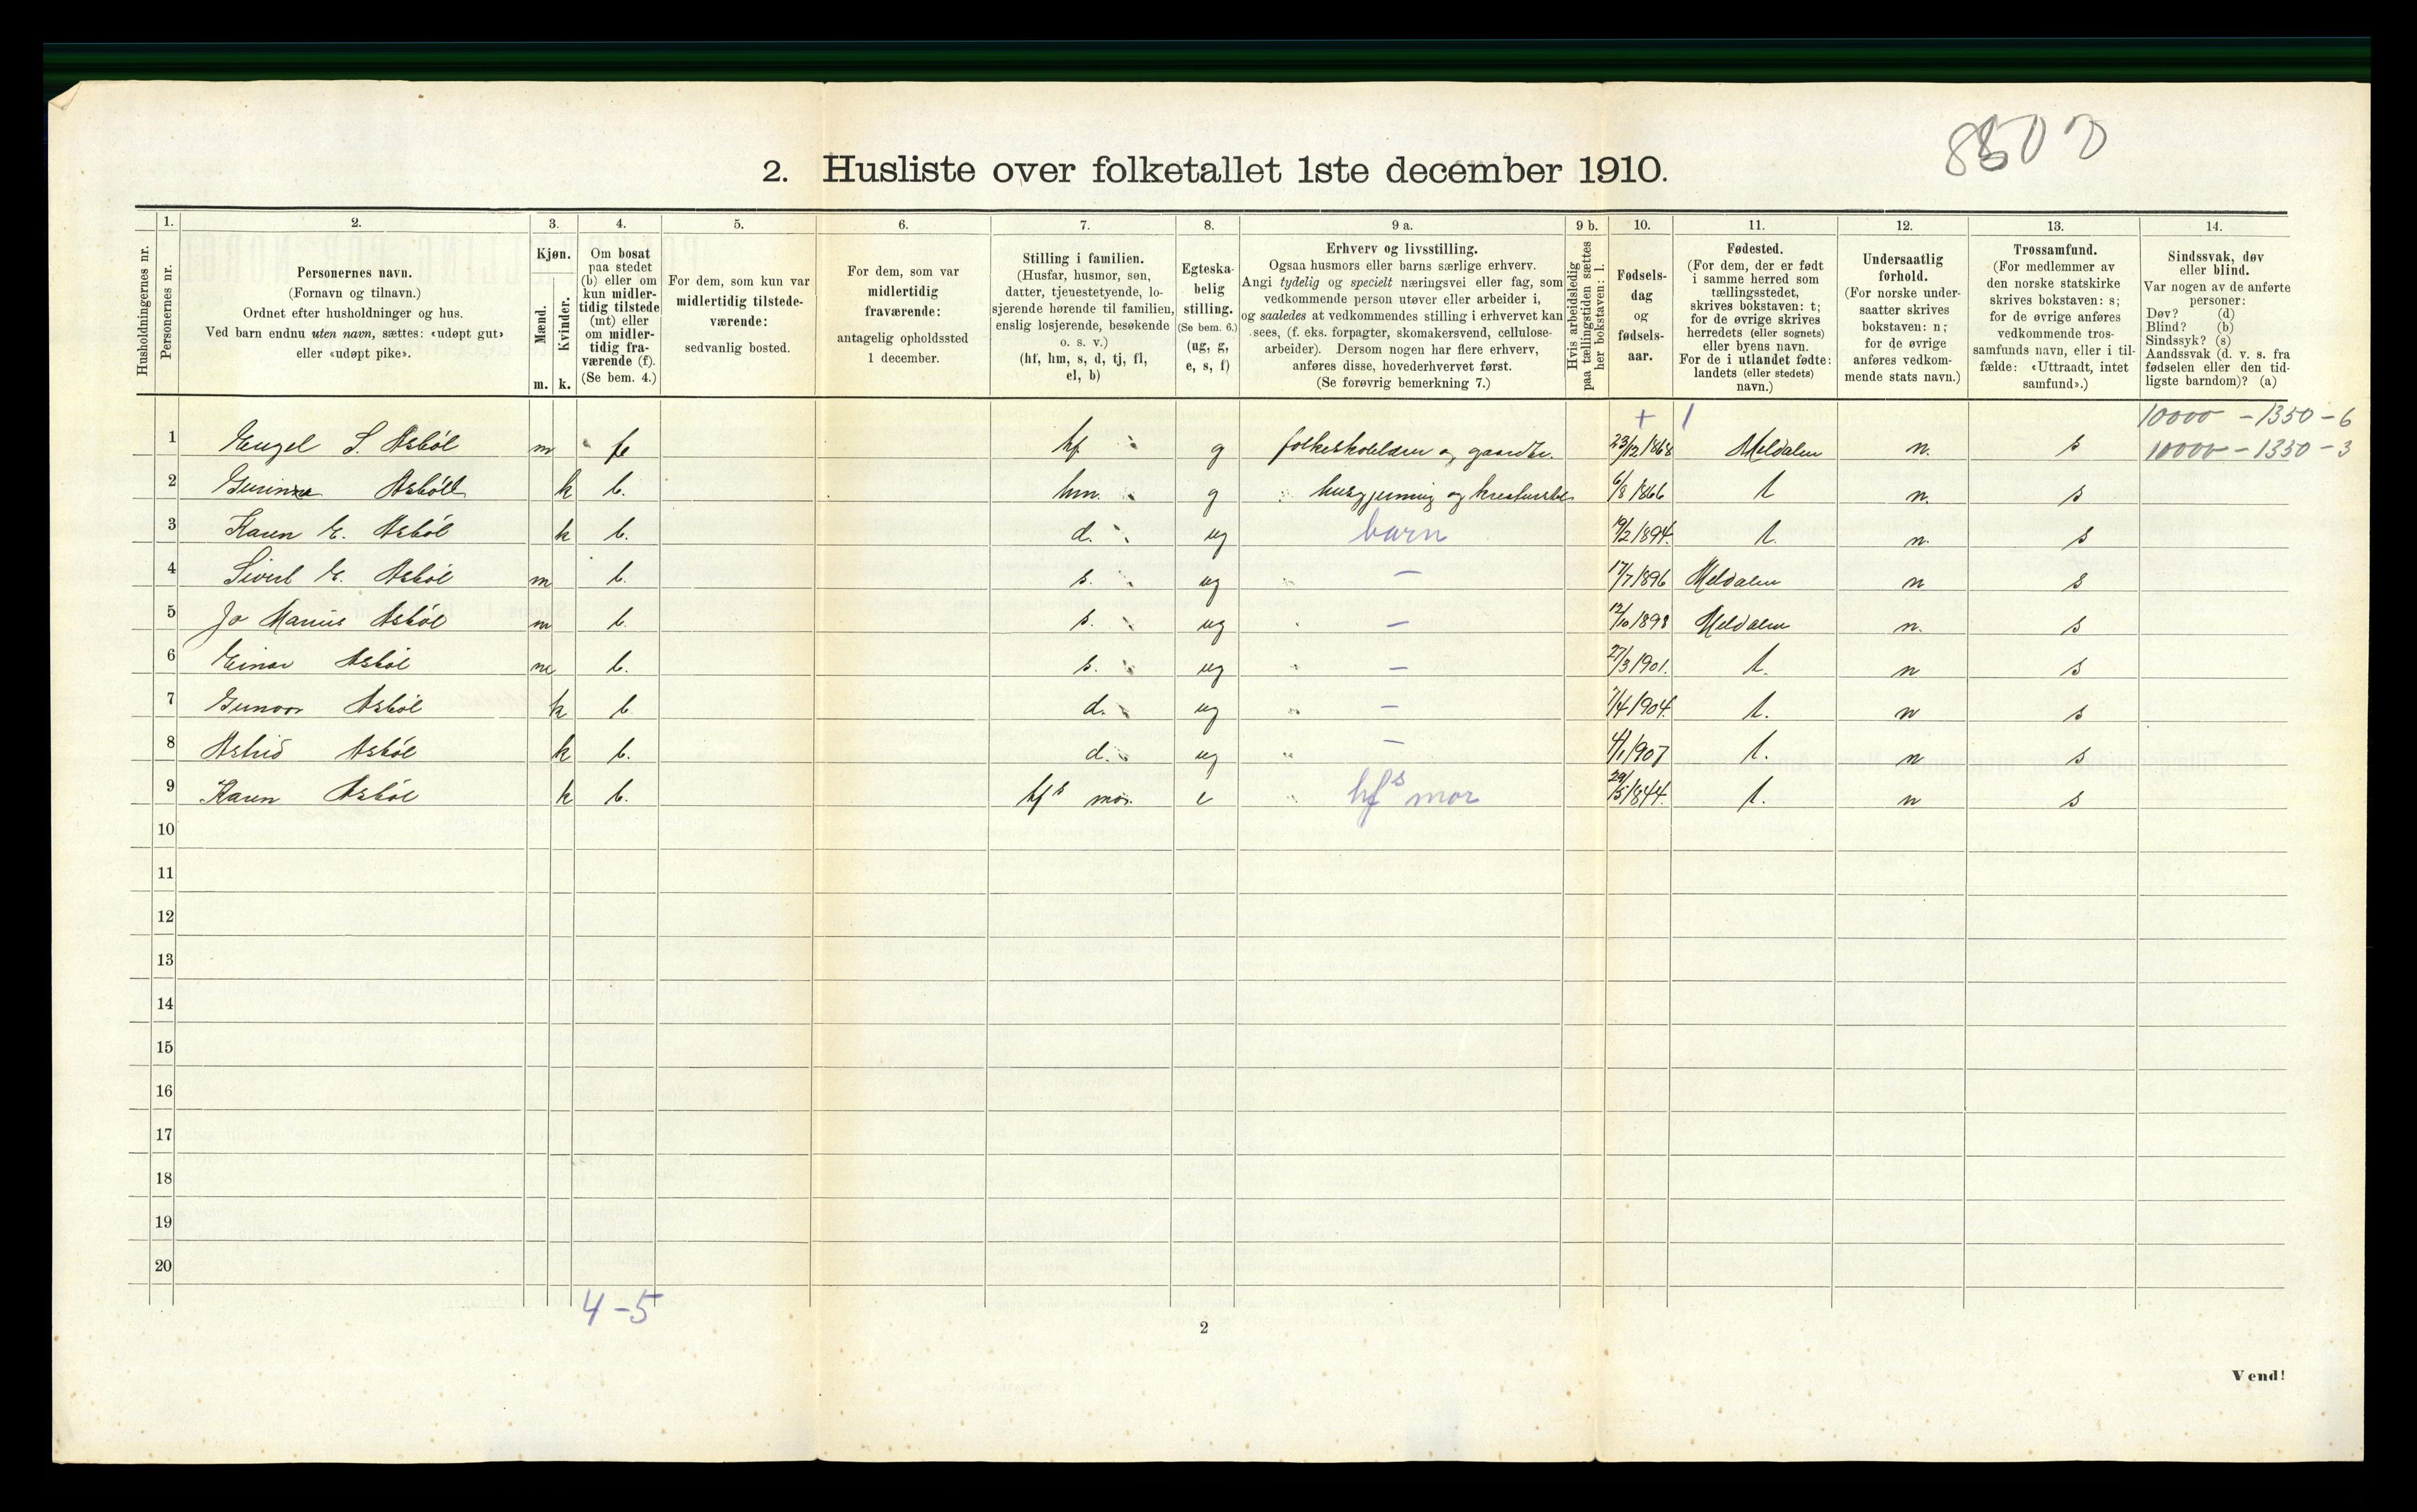 8502
2. Husliste over folketallet 1ste december 1910.
Husholdningernes nr.
1.
Personernes nr.
2.
Personernes navn.
(Fornavn og tilnavn.)
Ordnet efter husholdninger og hus.
Ved barn endnu uten navn, sættes: «udøpt gut»
eller «udøpt pike».
3.
Kjøn.
Mænd.
Kvinder.
m. k.
4.
Om bosat
paa stedet
(b) eller om
kun midler-
tidig tilstede
(mt) eller
om midler-
tidig fra-
værende (f).
(Se bem. 4.)
5.
For dem, som kun var
midlertidig tilstede-
værende:
sedvanlig bosted.
6.
For dem, som var
midlertidig
fraværende:
antagelig opholdssted
1 december.
7.
Stilling i familien.
(Husfar, husmor, søn,
datter, tjenestetyende, lo-
sjerende hørende til familien,
enslig losjerende, besøkende
o. s. v.)
(hf, hm, s, d, tj, fl,
el, b)
8.
Egteska-
belig
stilling.
(Se bem. 6.)
(ug, g,
e, s, f)
9 a.
Erhverv og livsstilling.
Ogsaa husmors eller barns særlige erhverv.
Angi tydelig og specielt næringsvei eller fag, som
vedkommende person utøver eller arbeider i,
og saaledes at vedkommendes stilling i erhvervet kan
sees, (f. eks. forpagter, skomakersvend, cellulose-
arbeider). Dersom nogen har flere erhverv,
anføres disse, hovederhvervet først.
(Se forøvrig bemerkning 7.)
9 b.
Hvis arbeidsledig
paa tællingstiden sættes
her bokstaven: l.
10.
Fødsels-
dag
og
fødsels-
aar.
11.
Fødested.
(For dem, der er født
i samme herred som
tællingsstedet,
skrives bokstaven: t;
for de øvrige skrives
herredets (eller sognets)
eller byens navn.
For de i utlandet fødte:
landets (eller stedets)
navn.)
12.
Undersaatlig
forhold.
(For norske under-
saatter skrives
bokstaven: n;
for de øvrige
anføres vedkom-
mende stats navn.)
13.
Trossamfund.
(For medlemmer av
den norske statskirke
skrives bokstaven: s;
for de øvrige anføres
vedkommende tros-
samfunds navn, eller i til-
fælde: «Uttraadt, intet
samfund».)
14.
Sindssvak, døv
eller blind.
Var nogen av de anførte
personer:
Døv? (d)
Blind? (b)
Sindssyk? (s)
Aandssvak (d. v. s. fra
fødselen eller den tid-
ligste barndom)? (a)
+ 1 10000 - 1350 - 6
1 Engel S. Asbøl m b hf g folkeskolelærer og gaardbr. 23/12 1868 Meldalen n. s 10000 - 1350 - 3
2 Gurinna Asbøll k b. hm. g husgjerning og kreaturstel 6/8 1866 t n. s
3 Karen E. Asbøl k b. d. ug barn 19/2 1894. t. n. s
4 Sivert E. Asbøl m b. s. ug — 17/7 1896 Meldalen n s
5 Jo Marius Asbøl m b. s. ug — 12/10 1898 Meldalen n. s
6 Einar Asbøl m b. s. ug — 27/3 1901. t. n s
7 Gunvor Asbøl k b d. ug — 7/4 1904. t. n s
8 Astrid Asbøl k b. d. ug — 4/1 1907 t. n s
9 Karen Asbøl k b. hfs mor. e hfs mor 29/5 1844. t. n s
10
11
12
13
14
15
16
17
18
19
20
4 - 5
2
Vend!